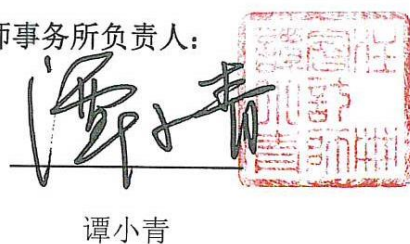 师事务所负责人:
谭小青
谭小青